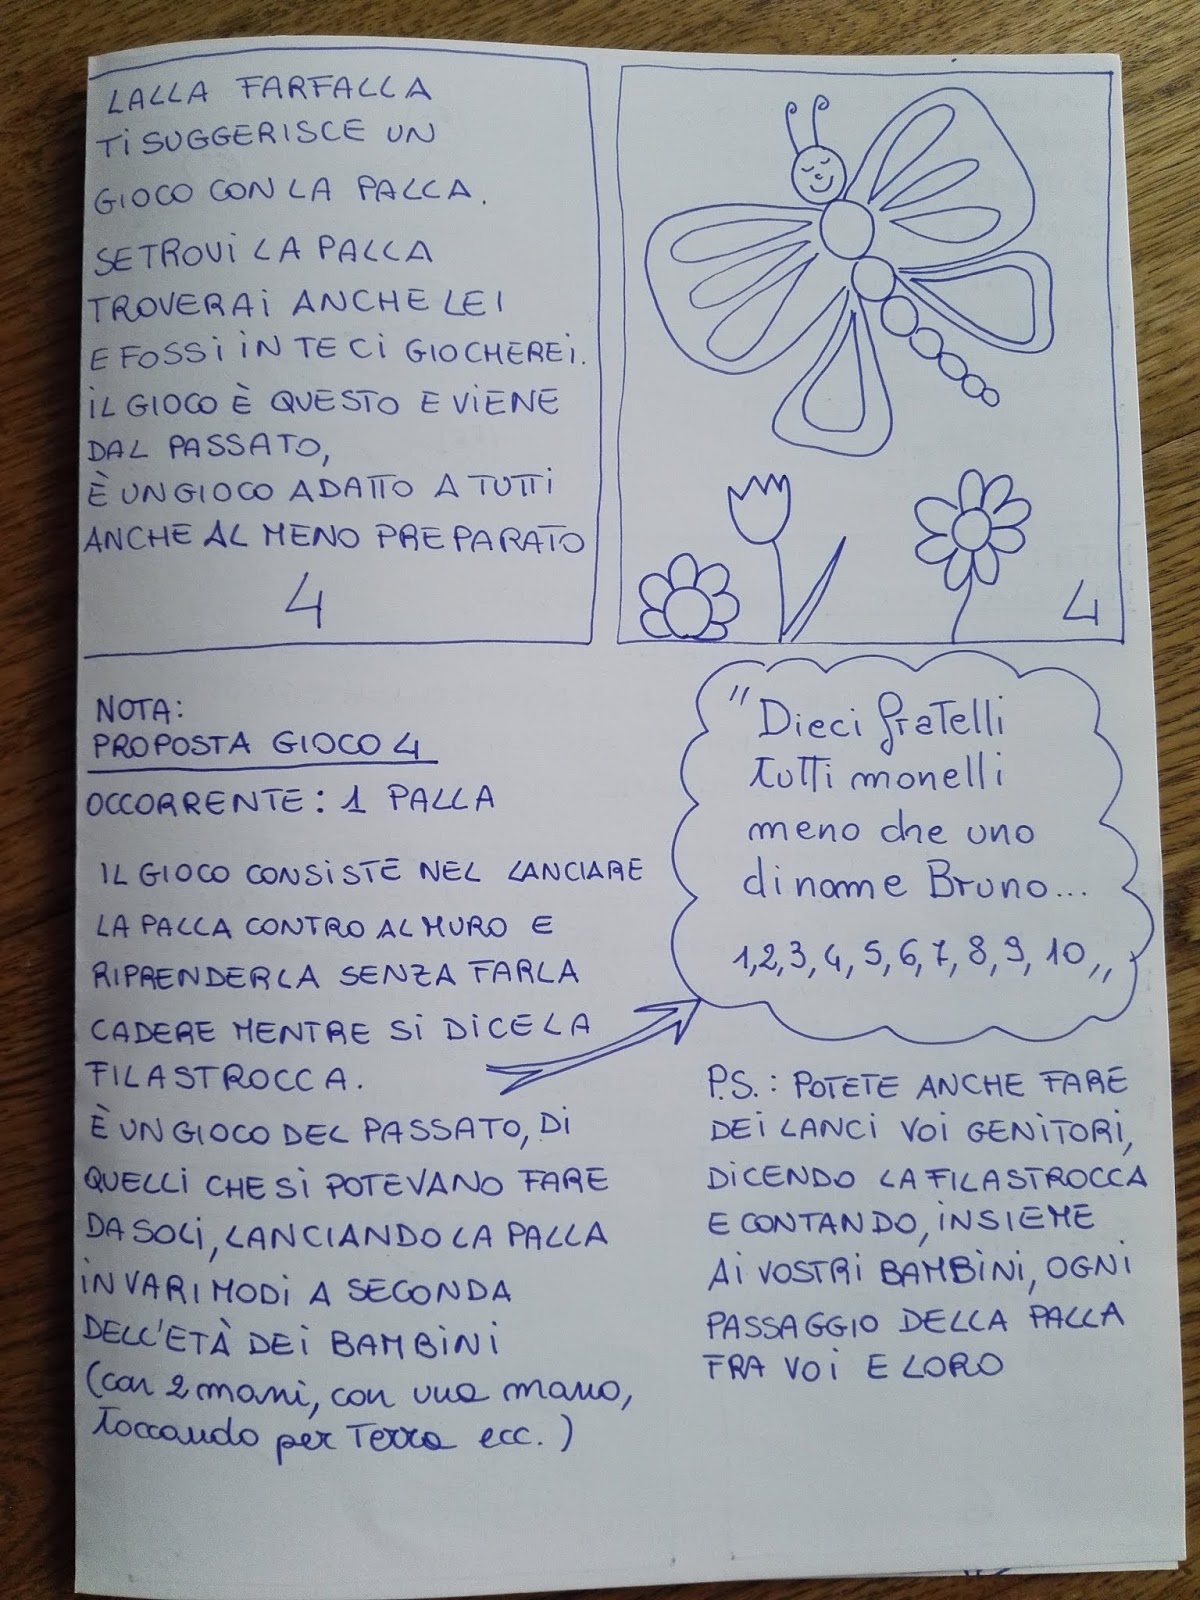 LALLA FARFALLA
TI SUGGERISCE UN
GIOCO CON LA PALLA.
SE TROVI LA PALLA
TROVERAI ANCHE LEI
E FOSSI IN TE CI GIOCHEREI.
IL GIOCO È QUESTO E VIENE
DAL PASSATO,
È UN GIOCO ADATTO A TUTTI
ANCHE AL MENO PREPARATO
4
4
NOTA:
PROPOSTA GIOCO 4
OCCORRENTE: 1 PALLA
IL GIOCO CONSISTE NEL LANCIARE
LA PALLA CONTRO AL MURO E
RIPRENDERLA SENZA FARLA
CADERE MENTRE SI DICE LA
FILASTROCCA.
È UN GIOCO DEL PASSATO, DI
QUELLI CHE SI POTEVANO FARE
DA SOLI, LANCIANDO LA PALLA
IN VARI MODI A SECONDA
DELL'ETÀ DEI BAMBINI
(con 2 mani, con una mano,
toccando per terra ecc.)
"Dieci fratelli
tutti monelli
meno che uno
di nome Bruno...
1,2,3,4,5,6,7,8,9,10,,
P.S.: POTETE ANCHE FARE
DEI LANCI VOI GENITORI,
DICENDO LA FILASTROCCA
E CONTANDO, INSIEME
AI VOSTRI BAMBINI, OGNI
PASSAGGIO DELLA PALLA
FRA VOI E LORO